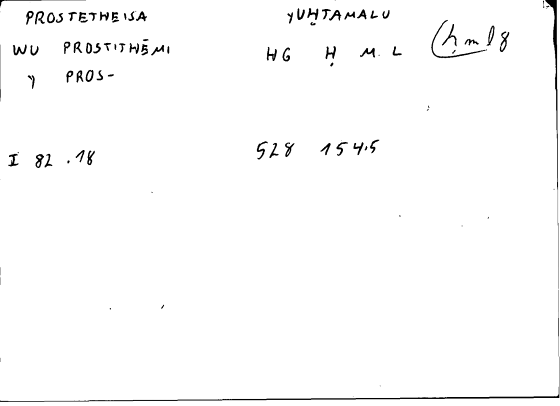 PROSTETHEISA yUḤTAMALU
WU PROSTITHĒMI HG Ḥ M L ḥml8
y PROS-
I 82 .18 528 154.5